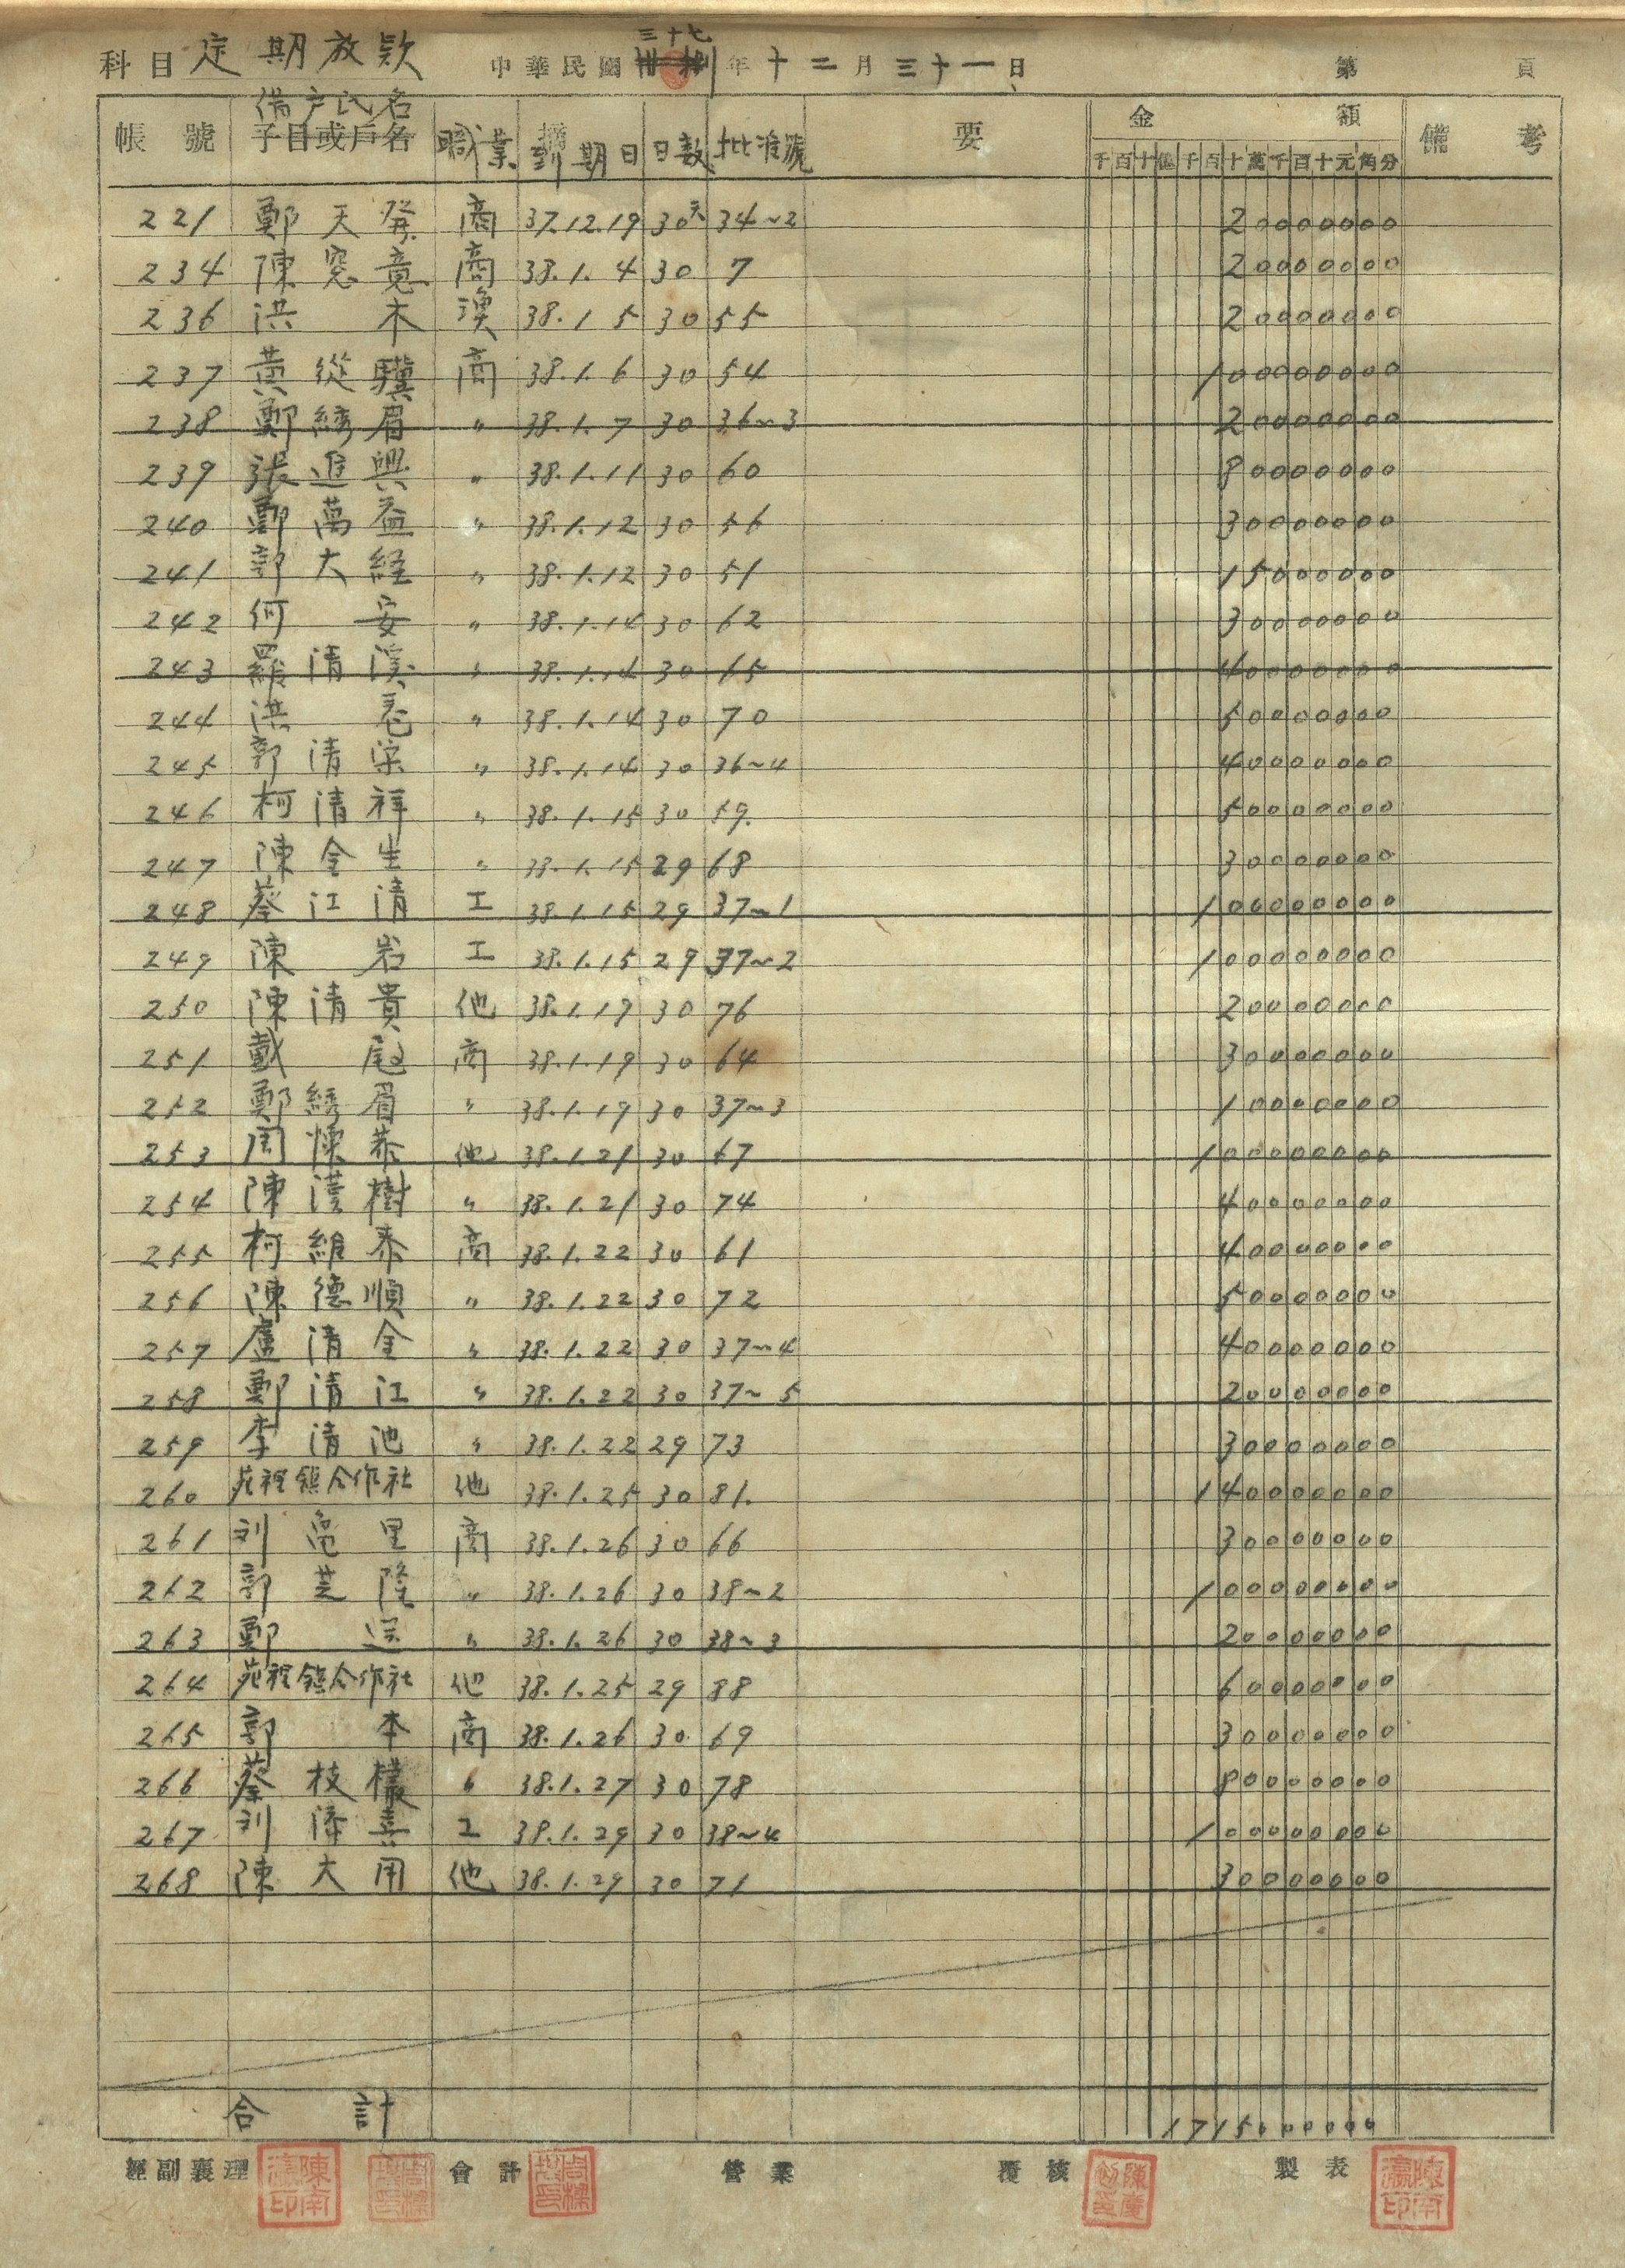 科目 定期放款 中華民國 三十七 年 十二 月 三十一 日 第 頁
帳號 借戶氏名 子目或戶名 職業 摘 到期日 日數 批准號 要 金額 備考
千百十億千百十萬千百十元角分
221 鄭天發 商 37.12.19 30天 34~2 20000000
234 陳窓意 商 38.1.4 30 7 20000000
236 洪木 漁 38.1.5 30 55 20000000
237 黃從驥 商 38.1.6 30 54 100000000
238 鄭綉眉 〃 38.1.7 30 36~3 20000000
239 張進興 〃 38.1.11 30 60 80000000
240 鄭萬益 〃 38.1.12 30 56 30000000
241 郭大経 〃 38.1.12 30 51 15000000
242 何安 〃 38.1.14 30 62 30000000
243 羅清溪 〃 38.1.14 30 65 40000000
244 洪 〃 38.1.14 30 70 50000000
245 郭清 〃 38.1.14 30 36~4 40000000
246 柯清祥 〃 38.1.15 30 59 50000000
247 陳金生 〃 38.1.15 29 68 30000000
248 蔡江清 工 38.1.15 29 37~1 100000000
249 陳岩 工 38.1.15 29 37~2 100000000
250 陳清貴 他 38.1.19 30 76 20000000
251 戴 商 38.1.19 30 64 30000000
252 鄭綉眉 〃 38.1.19 30 37~3 10000000
253 周煉恭 他 38.1.21 30 67 100000000
254 陳漢樹 〃 38.1.21 30 74 40000000
255 柯維泰 商 38.1.22 30 61 40000000
256 陳德順 〃 38.1.22 30 72 50000000
257 盧清金 〃 38.1.22 30 37~4 40000000
258 鄭清江 〃 38.1.22 30 37~5 20000000
259 李清池 〃 38.1.22 29 73 30000000
260 苑裡鎮合作社 他 38.1.25 30 81 140000000
261 刘亀里 商 38.1.26 30 66 30000000
262 郭芝隆 〃 38.1.26 30 38~2 100000000
263 鄭送 〃 38.1.26 30 38~3 20000000
264 苑裡鎮合作社 他 38.1.25 29 88 60000000
265 郭本 商 38.1.26 30 69 30000000
266 蔡枝欉 〃 38.1.27 30 78 80000000
267 刘添喜 工 38.1.29 30 38~4 100000000
268 陳大用 他 38.1.29 30 71 30000000
合計 1715000000
經副襄理 會計 營業 覆核 製表
陳南瀛印